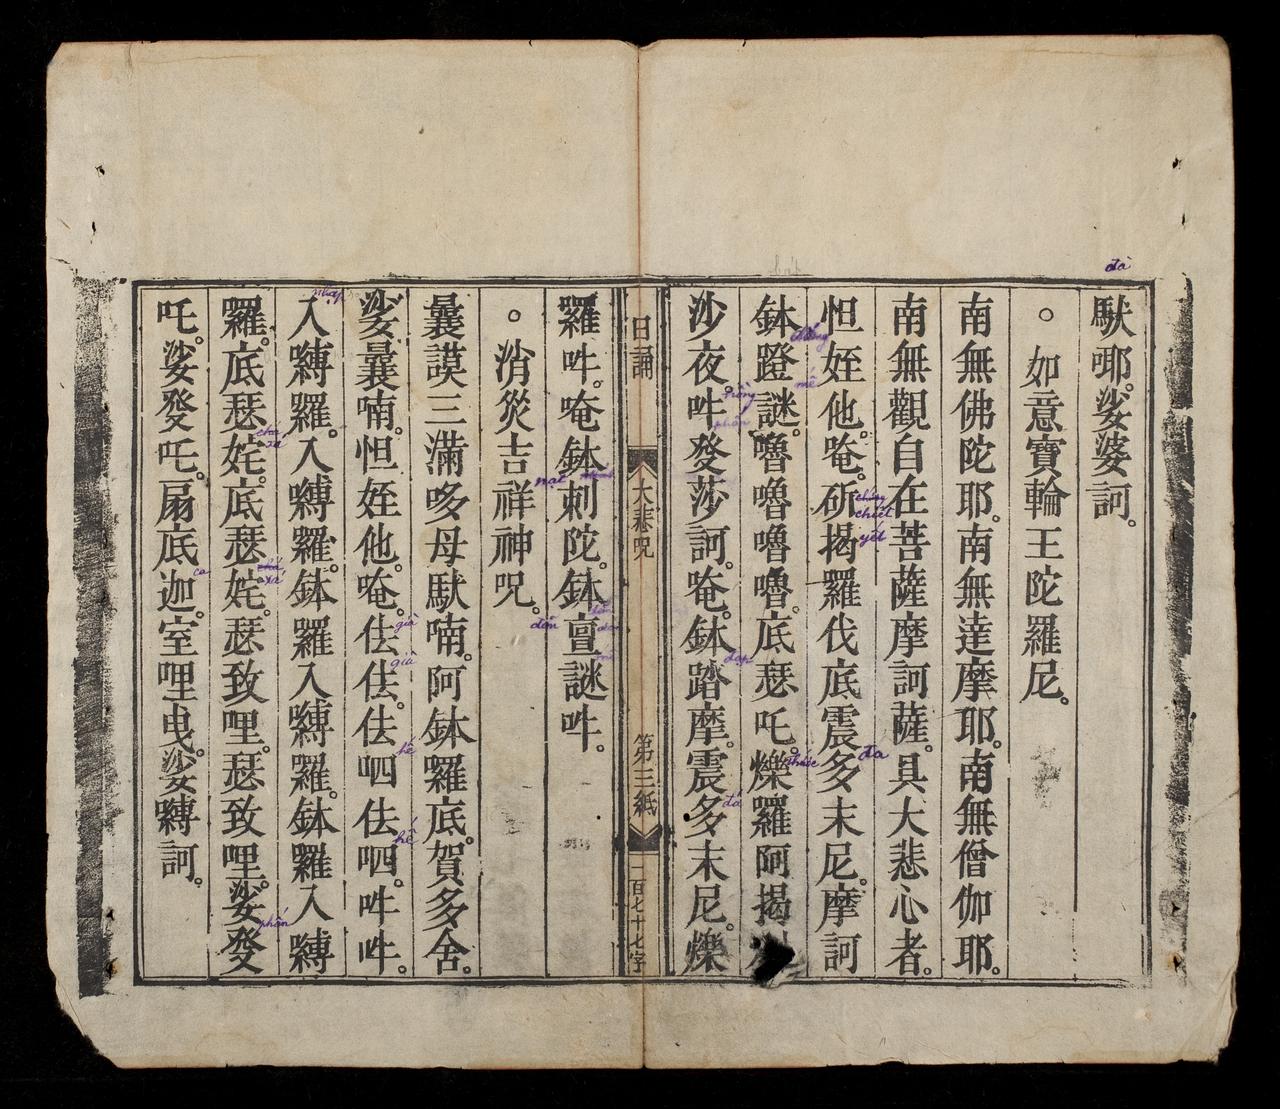 馱唧。娑婆訶。
○如意寶輪王陀羅尼。
南無佛陀耶。南無達摩耶。南無僧伽耶。
南無觀自在菩薩摩訶薩。具大悲心者。
怛姪他。唵。斫揭羅伐底震多末尼。摩訶
鉢蹬謎。嚕嚕嚕嚕。底瑟吒。爍羅阿揭
沙夜吽癹莎訶。唵。鉢踏摩。震多末尼。爍
日誦
大悲咒
第三紙
一百七十七字
羅吽。唵鉢剌陀。鉢亶謎吽。
○消災吉祥神咒。
曩謨三滿哆母馱喃。阿鉢羅底。賀多舍。
娑曩喃。怛姪他。唵。佉佉。佉呬佉呬。吽吽。
入嚩羅。入嚩羅。鉢羅入嚩羅。鉢羅入嚩
羅。底瑟姹。底瑟姹。瑟致哩。瑟致哩。娑癹
吒。娑癹吒。扇底迦。室哩曳。娑嚩訶。
đà
mê
đa
chiết
yết
đạp
phấn
đa
nhập
xá
xá
ca
già
già
hê
hê
phấn